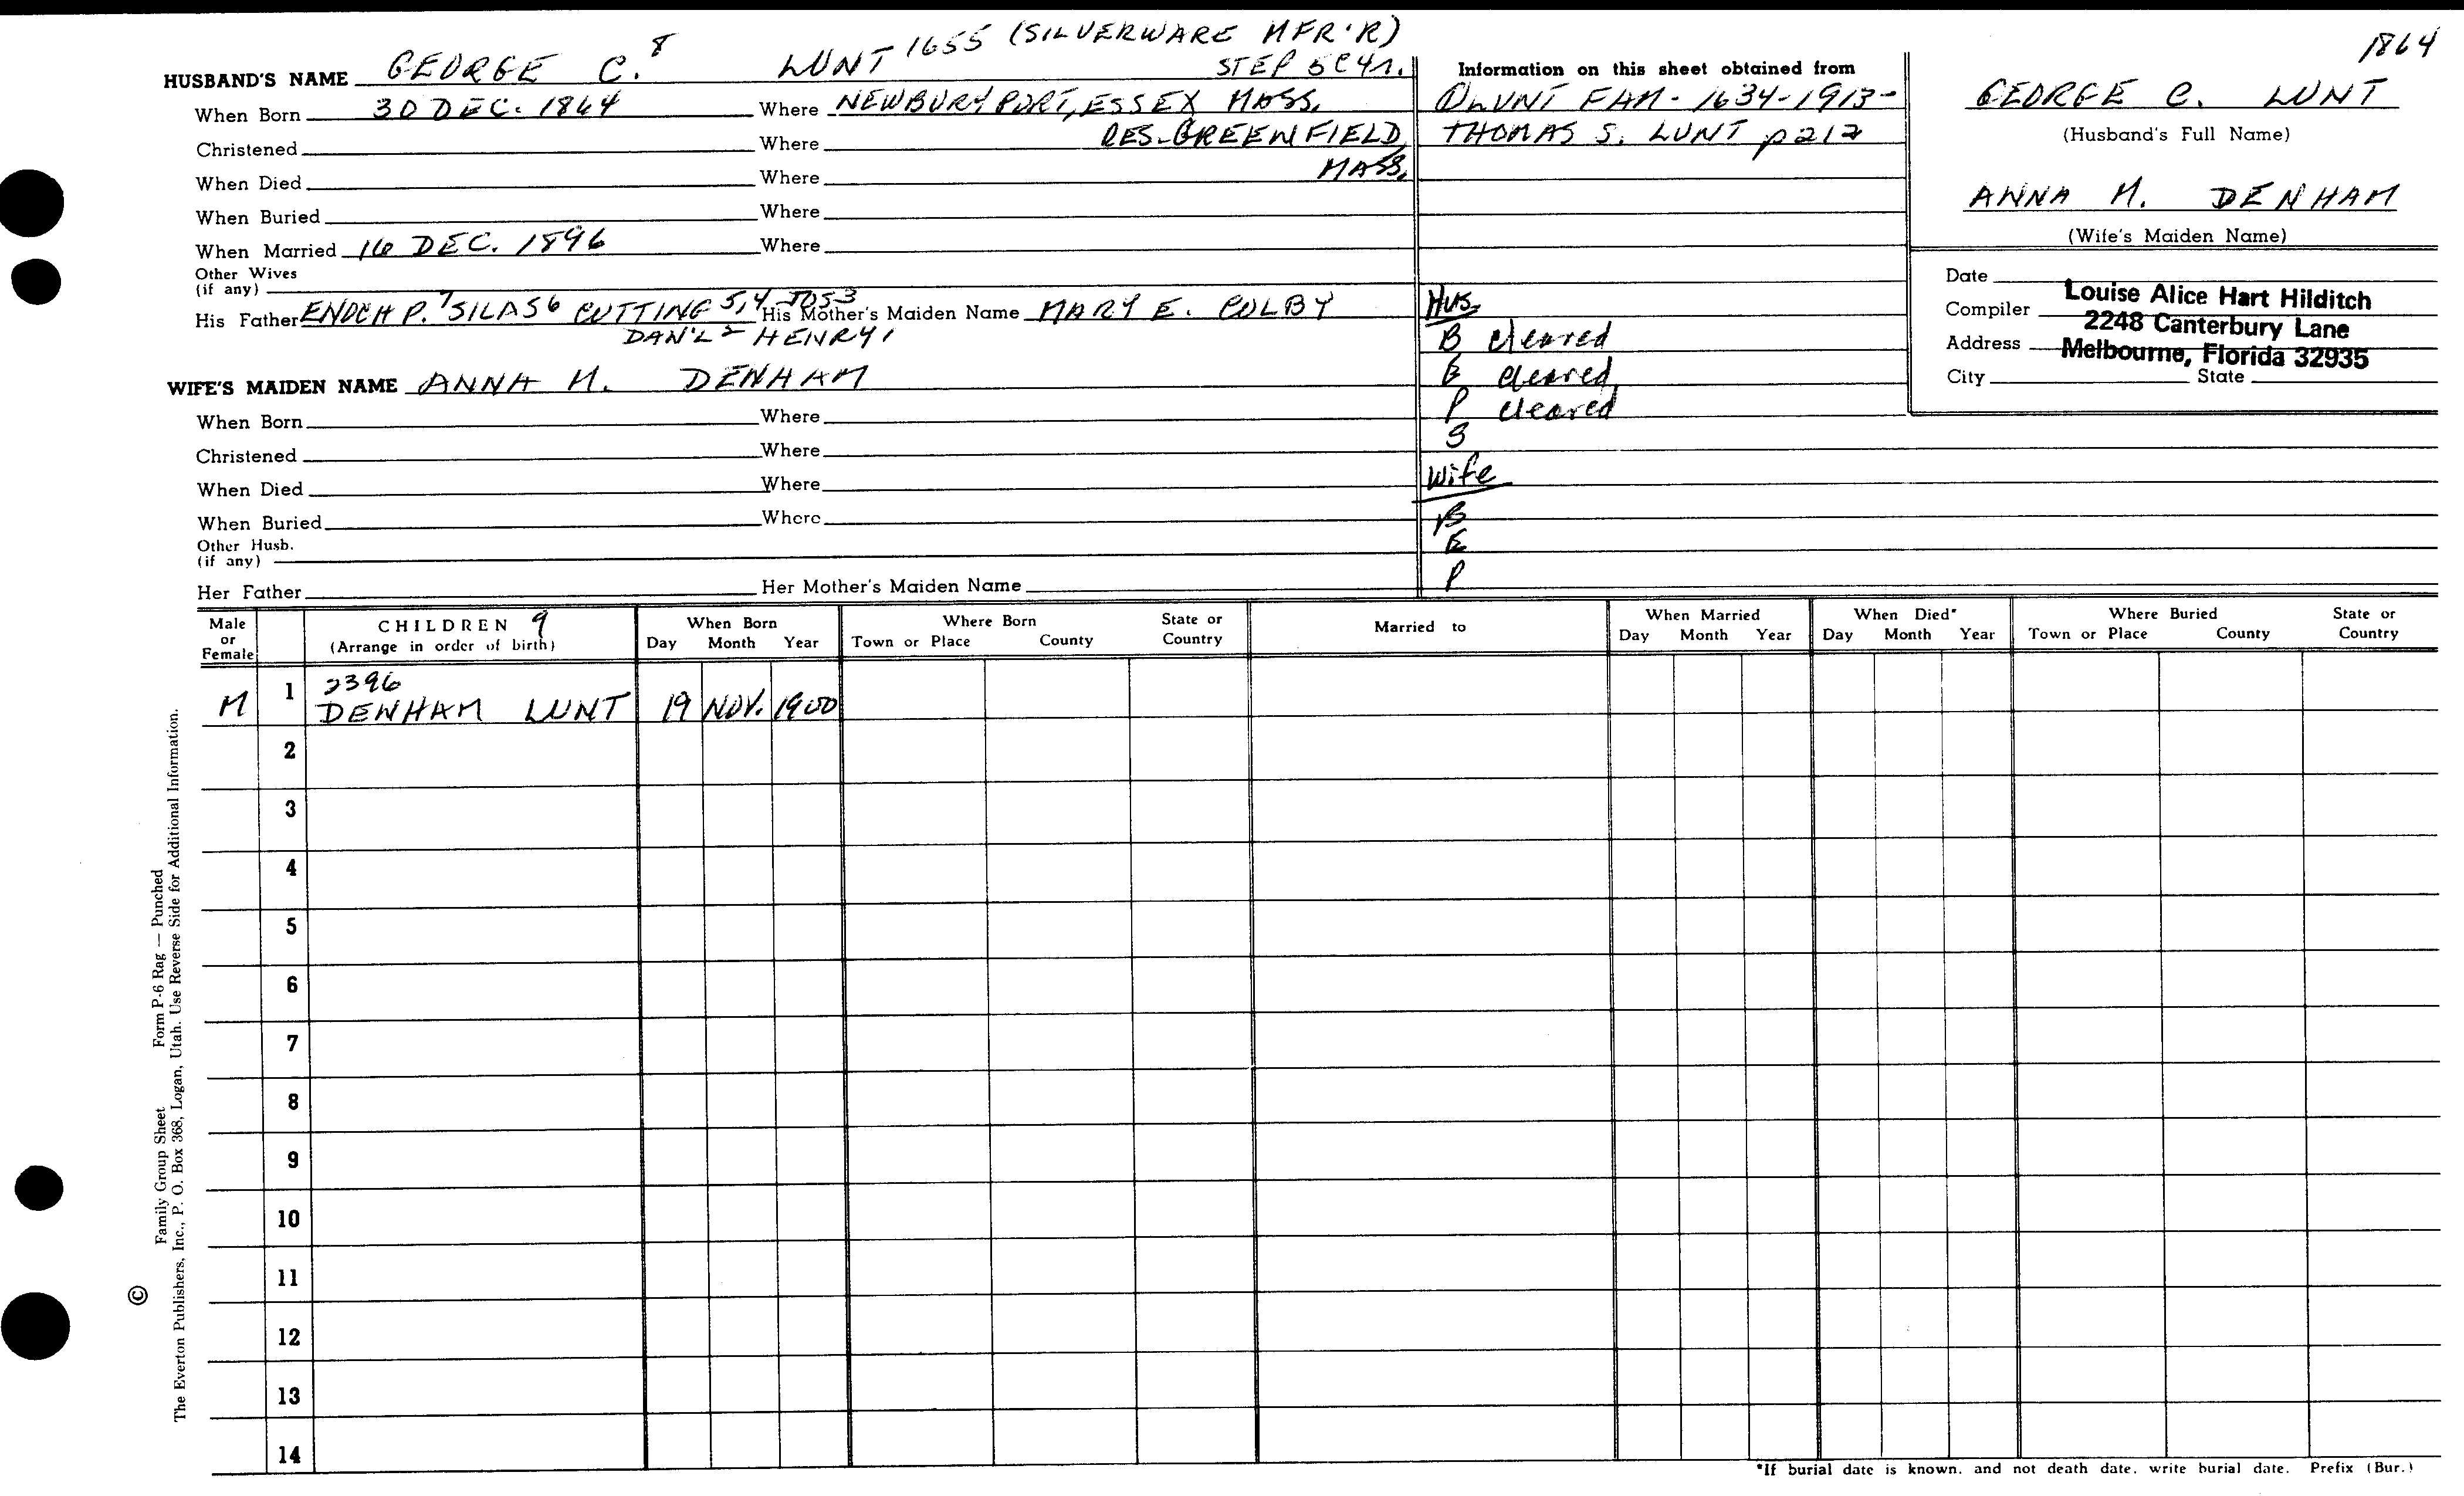 1864
HUSBAND'S NAME GEORGE C.8 LUNT 1655 (SILVERWARE MFR'R)
STEP 5C41.
When Born 30 DEC. 1864 Where NEWBURYPORT, ESSEX MASS.
Christened Where RES-GREENFIELD
When Died Where MASS.
When Buried Where
When Married 16 DEC. 1896 Where
Other Wives
(if any)
His Father ENOCH P.7 SILAS6 CUTTING 5,4 JOS3 His Mother's Maiden Name MARY E. COLBY
DAN'L2 HENRY1
WIFE'S MAIDEN NAME ANNA M. DENHAM
When Born Where
Christened Where
When Died Where
When Buried Where
Other Husb.
(if any)
Her Father Her Mother's Maiden Name
Information on this sheet obtained from
LUNT FAM- 1634-1913-
THOMAS S. LUNT p 217
Hus.
B cleared
E cleared
P cleared
S
Wife
B
E
P
GEORGE C. LUNT
(Husband's Full Name)
ANNA M. DENHAM
(Wife's Maiden Name)
Date
Compiler Louise Alice Hart Hilditch
Address 2248 Canterbury Lane
City Melbourne, Florida 32935 State
Male or Female CHILDREN 9 (Arrange in order of birth) When Born Day Month Year Where Born Town or Place County State or Country Married to When Married Day Month Year When Died* Day Month Year Where Buried Town or Place County State or Country
2396
M 1 DENHAM LUNT 19 NOV. 1900
2
3
4
5
6
7
8
9
10
11
12
13
14
*If burial date is known, and not death date, write burial date. Prefix (Bur.)
© Family Group Sheet Form P-6 Rag — Punched
The Everton Publishers, Inc., P. O. Box 368, Logan, Utah. Use Reverse Side for Additional Information.